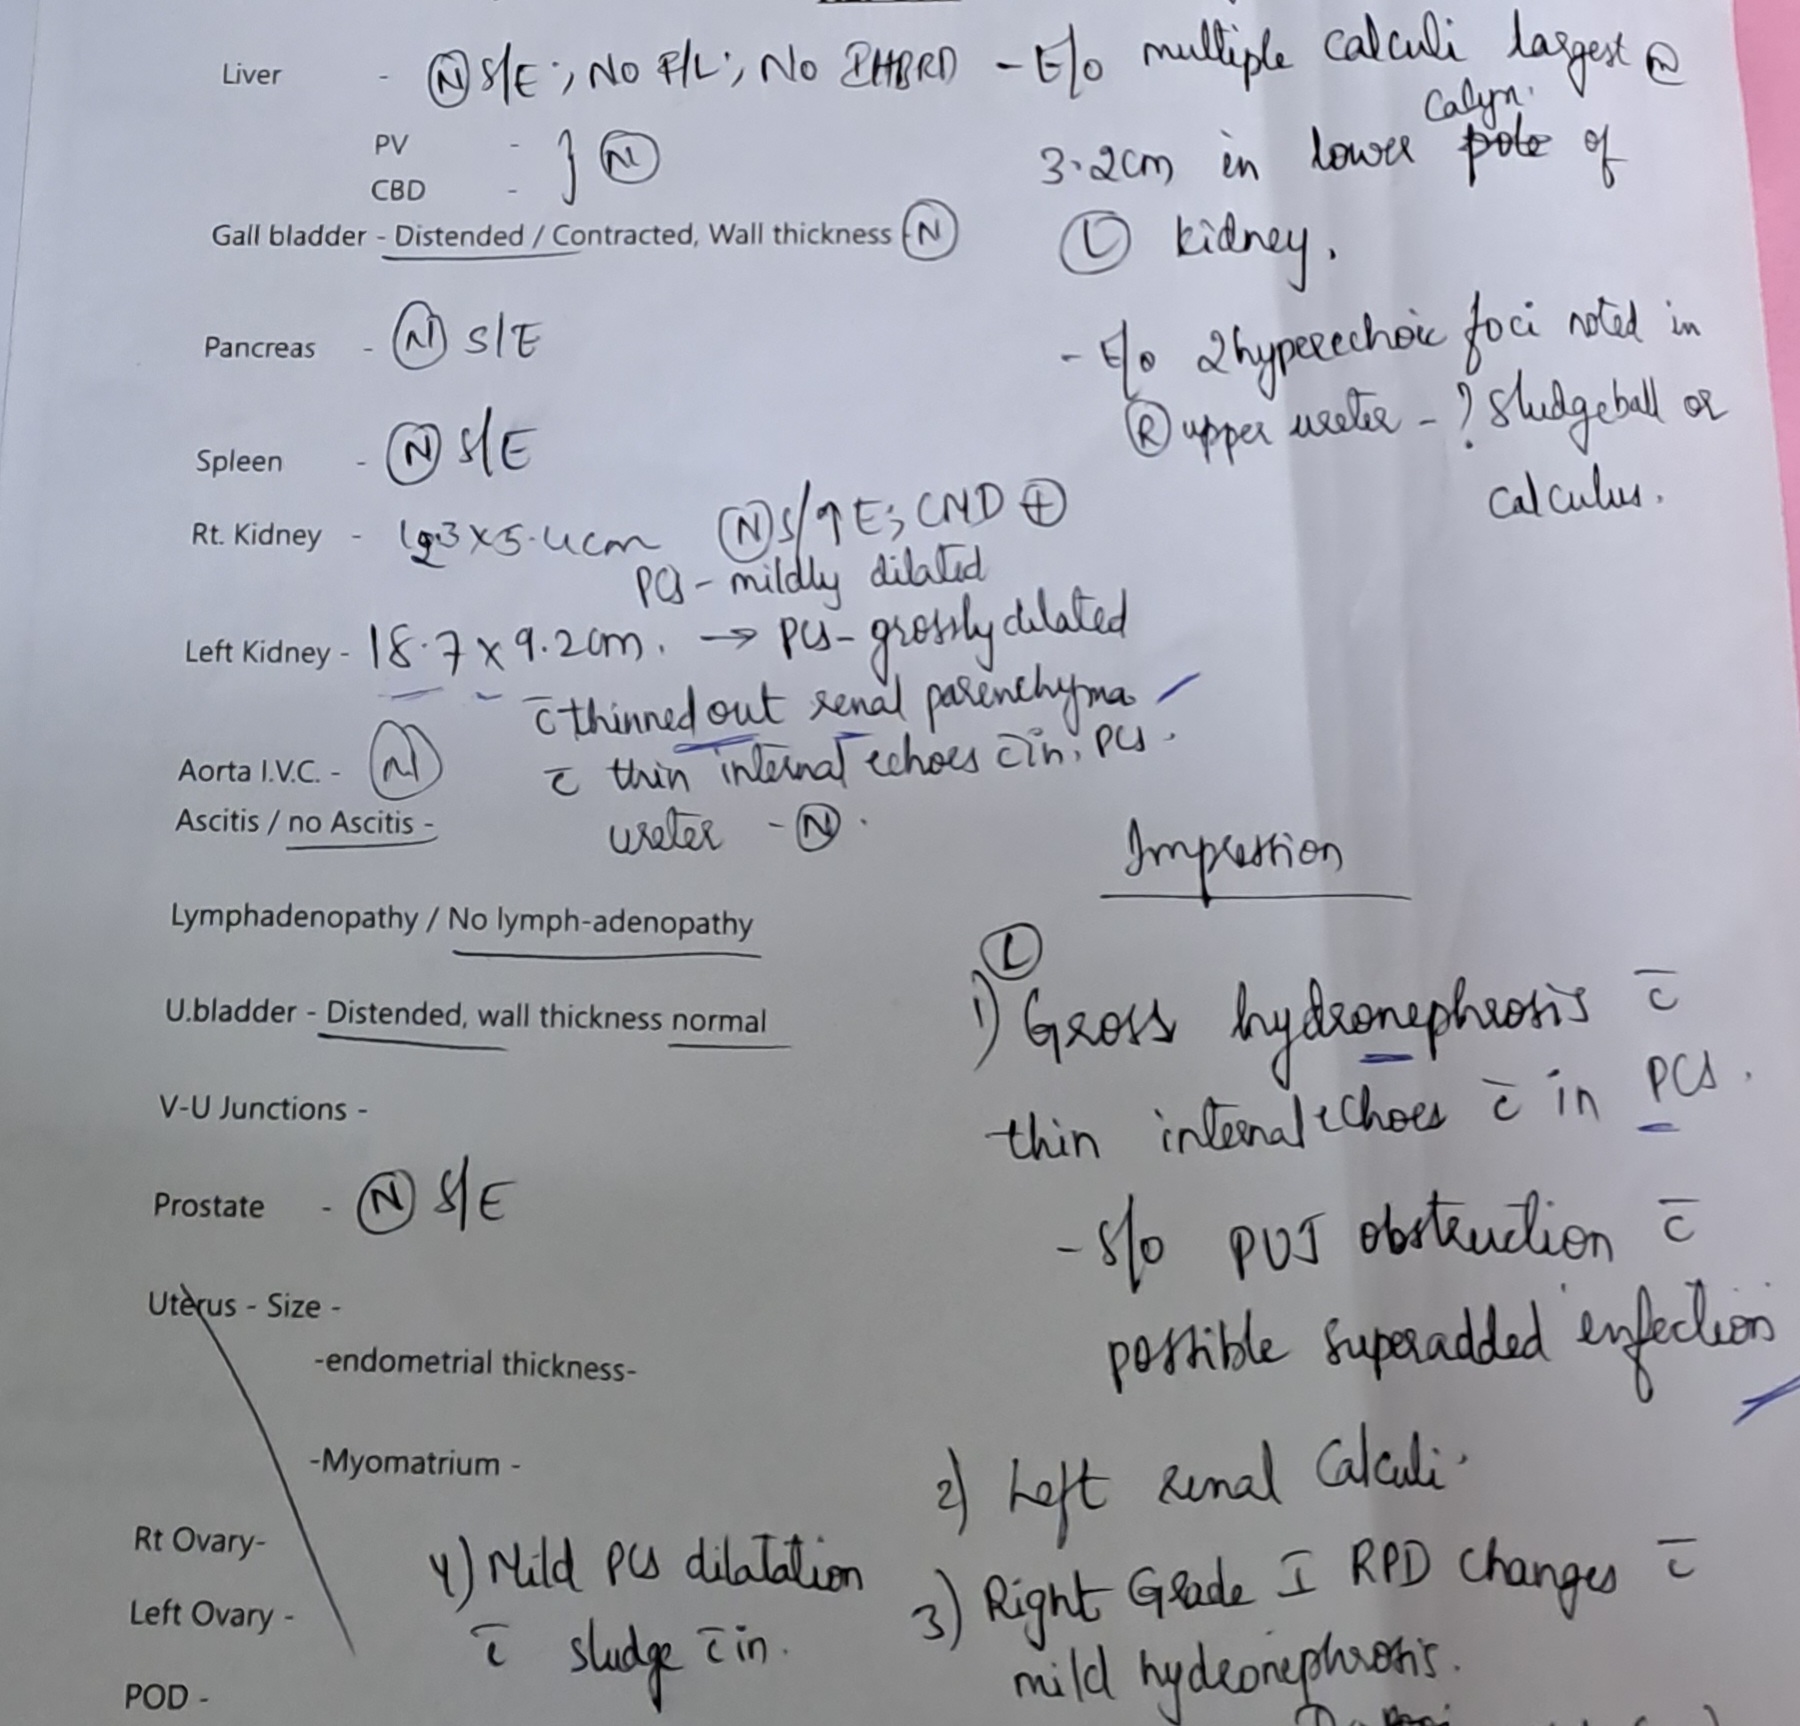 Liver - Ⓝ S/E ; No F/L ; No IHBRD
PV - } Ⓝ
CBD -
Gall bladder - Distended / Contracted, Wall thickness Ⓝ
Pancreas - Ⓝ S/E
Spleen - Ⓝ S/E
Rt. Kidney - x 5.4cm Ⓝ S/↑E; CMD ⊕
PCS - mildly dilated
Left Kidney - 18.7 x 9.2cm. → PCS - grossly dilated
c̄ thinned out renal parenchyma
c̄ thin internal echoes c̄in PCS.
ureter - Ⓝ.
Aorta I.V.C. - Ⓝ
Ascitis / no Ascitis -
Lymphadenopathy / No lymph-adenopathy
U.bladder - Distended, wall thickness normal
V-U Junctions -
Prostate - Ⓝ S/E
Uterus - Size -
-endometrial thickness-
-Myomatrium -
Rt Ovary-
Left Ovary -
POD -
- E/o multiple calculi largest
calyx.
3.2cm in lower pole of
Ⓛ kidney.
- E/o 2 hyperechoic foci noted in
Ⓡ upper ureter - ? Sludgeball or
calculus.
Impression
Ⓛ
1) Gross hydronephrosis c̄
thin internal echoes c̄ in PCS.
- S/o PUJ obstruction c̄
possible superadded infection
2) Left renal Calculi.
3) Right Grade I RPD changes c̄
mild hydronephrosis.
4) Mild PCS dilatation
c̄ sludge c̄in.